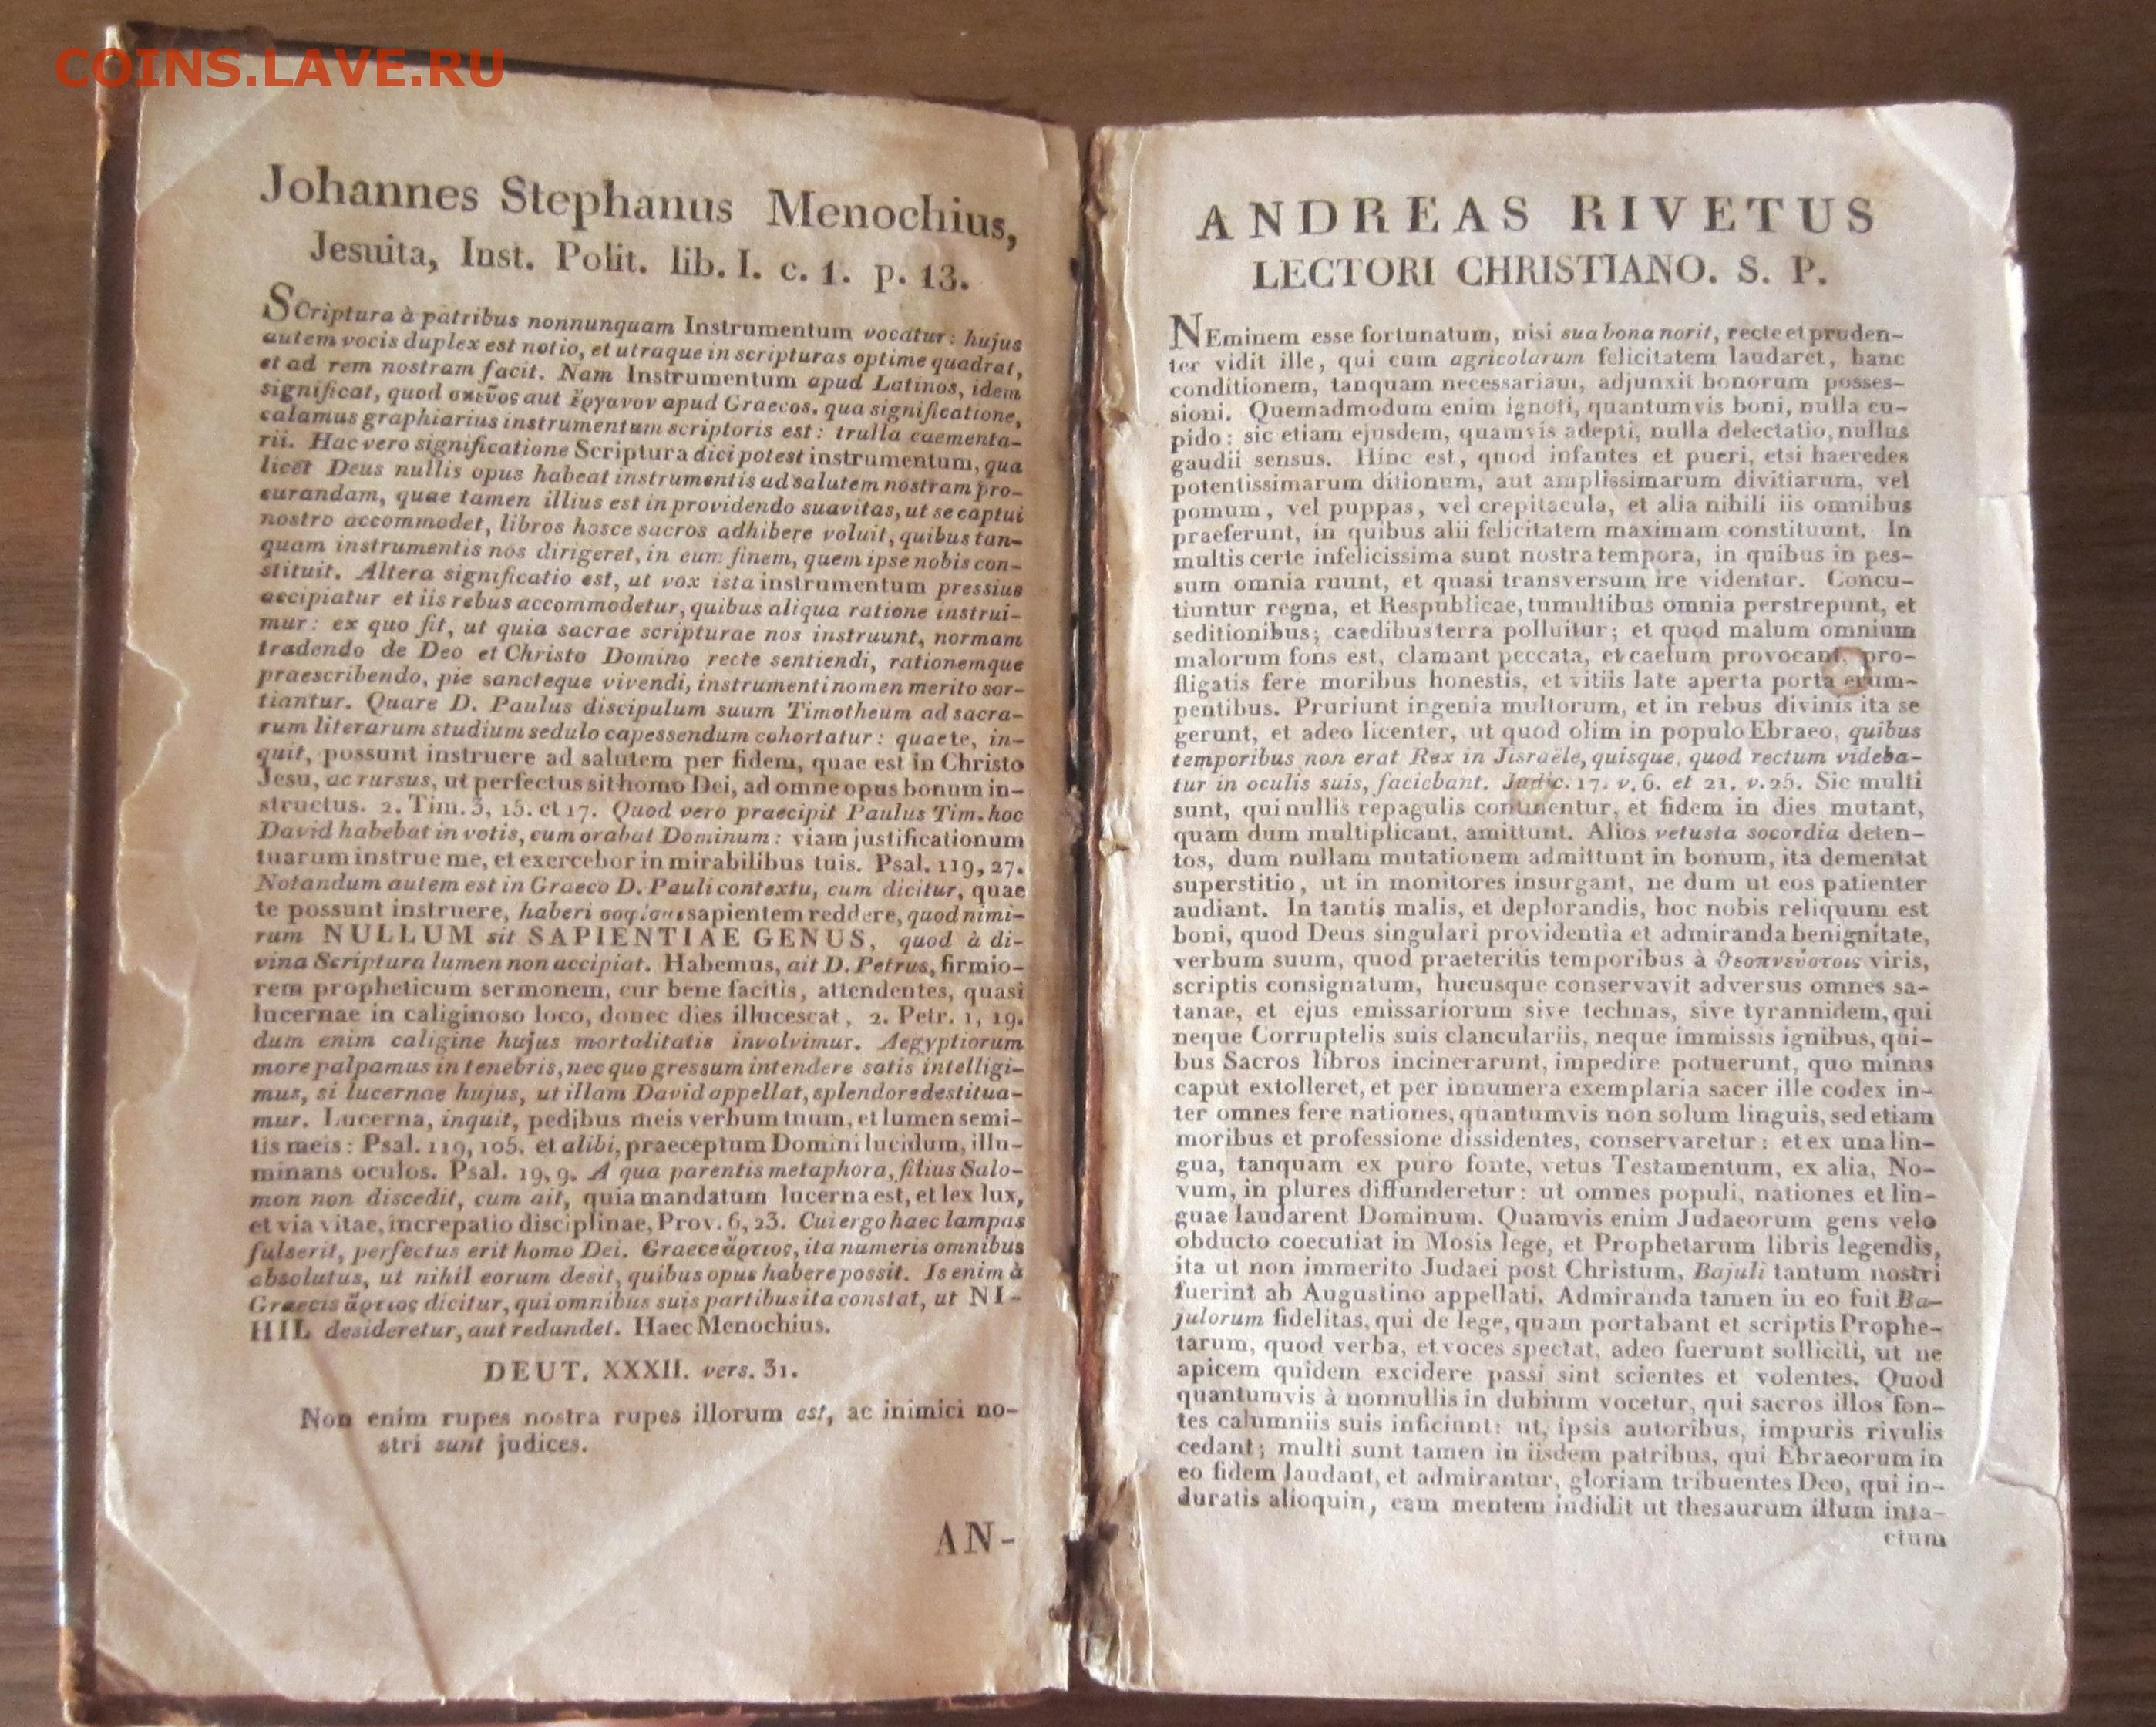 COINS.LAVE.RU
Johannes Stephanus Menochius,
Jesuita, Inst. Polit. lib. I. c. 1. p. 13.
SCriptura à patribus nonnunquam Instrumentum vocatur: hujus
autem vocis duplex est notio, et utraque in scripturas optime quadrat,
et ad rem nostram facit. Nam Instrumentum apud Latinos, idem
significat, quod σκεῦος aut ἔργανον apud Graecos. qua significatione,
calamus graphiarius instrumentum scriptoris est: trulla caementa-
rii. Hac vero significatione Scriptura dici potest instrumentum, qua
licet Deus nullis opus habeat instrumentis ad salutem nostram pro-
curandam, quae tamen illius est in providendo suavitas, ut se captui
nostro accommodet, libros hosce sacros adhibere voluit, quibus tan-
quam instrumentis nos dirigeret, in eum finem, quem ipse nobis con-
stituit. Altera significatio est, ut vox ista instrumentum pressius
accipiatur et iis rebus accommodetur, quibus aliqua ratione instrui-
mur: ex quo fit, ut quia sacrae scripturae nos instruunt, normam
tradendo de Deo et Christo Domino recte sentiendi, rationemque
praescribendo, pie sancteque vivendi, instrumenti nomen merito sor-
tiantur. Quare D. Paulus discipulum suum Timotheum ad sacra-
rum literarum studium sedulo capessendum cohortatur: quae te, in-
quit, possunt instruere ad salutem per fidem, quae est in Christo
Jesu, ac rursus, ut perfectus sit homo Dei, ad omne opus bonum in-
structus. 2. Tim. 3, 15. et 17. Quod vero praecipit Paulus Tim. hoc
David habebat in votis, cum orabat Dominum: viam justificationum
tuarum instrue me, et exercebor in mirabilibus tuis. Psal. 119, 27.
Notandum autem est in Graeco D. Pauli contextu, cum dicitur, quae
te possunt instruere, haberi σοφίσαι sapientem reddere, quod nimi-
rum NULLUM sit SAPIENTIAE GENUS, quod à di-
vina Scriptura lumen non accipiat. Habemus, ait D. Petrus, firmio-
rem propheticum sermonem, cur bene facitis, attendentes, quasi
lucernae in caliginoso loco, donec dies illucescat, 2. Petr. 1, 19.
dum enim caligine hujus mortalitatis involvimur. Aegyptiorum
more palpamus in tenebris, nec quo gressum intendere satis intelligi-
mus, si lucernae hujus, ut illam David appellat, splendore destitua-
mur. Lucerna, inquit, pedibus meis verbum tuum, et lumen semi-
tis meis: Psal. 119, 105. et alibi, praeceptum Domini lucidum, illu-
minans oculos. Psal. 19, 9. A qua parentis metaphora, filius Salo-
mon non discedit, cum ait, quia mandatum lucerna est, et lex lux,
et via vitae, increpatio disciplinae, Prov. 6, 23. Cui ergo haec lampas
fulserit, perfectus erit homo Dei. Graece ἄρτιος, ita numeris omnibus
absolutus, ut nihil eorum desit, quibus opus habere possit. Is enim à
Graecis ἄρτιος dicitur, qui omnibus suis partibus ita constat, ut NI-
HIL desideretur, aut redundet. Haec Menochius.
DEUT. XXXII. vers. 31.
Non enim rupes nostra rupes illorum est, ac inimici no-
stri sunt judices.
AN-
ANDREAS RIVETUS
LECTORI CHRISTIANO. S. P.
NEminem esse fortunatum, nisi sua bona norit, recte et pruden-
ter vidit ille, qui cum agricolarum felicitatem laudaret, hanc
conditionem, tanquam necessariam, adjunxit bonorum posses-
sioni. Quemadmodum enim ignoti, quantumvis boni, nulla cu-
pido: sic etiam ejusdem, quamvis adepti, nulla delectatio, nullus
gaudii sensus. Hinc est, quod infantes et pueri, etsi haeredes
potentissimarum ditionum, aut amplissimarum divitiarum, vel
pomum, vel puppas, vel crepitacula, et alia nihili iis omnibus
praeferunt, in quibus alii felicitatem maximam constituunt. In
multis certe infelicissima sunt nostra tempora, in quibus in pes-
sum omnia ruunt, et quasi transversum ire videntur. Concu-
tiuntur regna, et Respublicae, tumultibus omnia perstrepunt, et
seditionibus; caedibus terra polluitur; et quod malum omnium
malorum fons est, clamant peccata, et caelum provocant, pro-
fligatis fere moribus honestis, et vitiis late aperta porta erum-
pentibus. Pruriunt ingenia multorum, et in rebus divinis ita se
gerunt, et adeo licenter, ut quod olim in populo Ebraeo, quibus
temporibus non erat Rex in Jisraële, quisque, quod rectum videba-
tur in oculis suis, faciebant. Judic. 17. v. 6. et 21. v. 25. Sic multi
sunt, qui nullis repagulis continentur, et fidem in dies mutant,
quam dum multiplicant, amittunt. Alios vetusta socordia deten-
tos, dum nullam mutationem admittunt in bonum, ita dementat
superstitio, ut in monitores insurgant, ne dum ut eos patienter
audiant. In tantis malis, et deplorandis, hoc nobis reliquum est
boni, quod Deus singulari providentia et admiranda benignitate,
verbum suum, quod praeteritis temporibus à θεοπνεύστοις viris,
scriptis consignatum, hucusque conservavit adversus omnes sa-
tanae, et ejus emissariorum sive technas, sive tyrannidem, qui
neque Corruptelis suis clanculariis, neque immissis ignibus, qui-
bus Sacros libros incinerarunt, impedire potuerunt, quo minus
caput extolleret, et per innumera exemplaria sacer ille codex in-
ter omnes fere nationes, quantumvis non solum linguis, sed etiam
moribus et professione dissidentes, conservaretur: et ex una lin-
gua, tanquam ex puro fonte, vetus Testamentum, ex alia, No-
vum, in plures diffunderetur: ut omnes populi, nationes et lin-
guae laudarent Dominum. Quamvis enim Judaeorum gens velo
obducto coecutiat in Mosis lege, et Prophetarum libris legendis,
ita ut non immerito Judaei post Christum, Bajuli tantum nostri
fuerint ab Augustino appellati. Admiranda tamen in eo fuit Ba-
julorum fidelitas, qui de lege, quam portabant et scriptis Prophe-
tarum, quod verba, et voces spectat, adeo fuerunt solliciti, ut ne
apicem quidem excidere passi sint scientes et volentes. Quod
quantumvis à nonnullis in dubium vocetur, qui sacros illos fon-
tes calumniis suis inficiunt: ut, ipsis autoribus, impuris rivulis
cedant; multi sunt tamen in iisdem patribus, qui Ebraeorum in
eo fidem laudant, et admirantur, gloriam tribuentes Deo, qui in-
duratis alioquin, eam mentem indidit ut thesaurum illum inta-
ctum